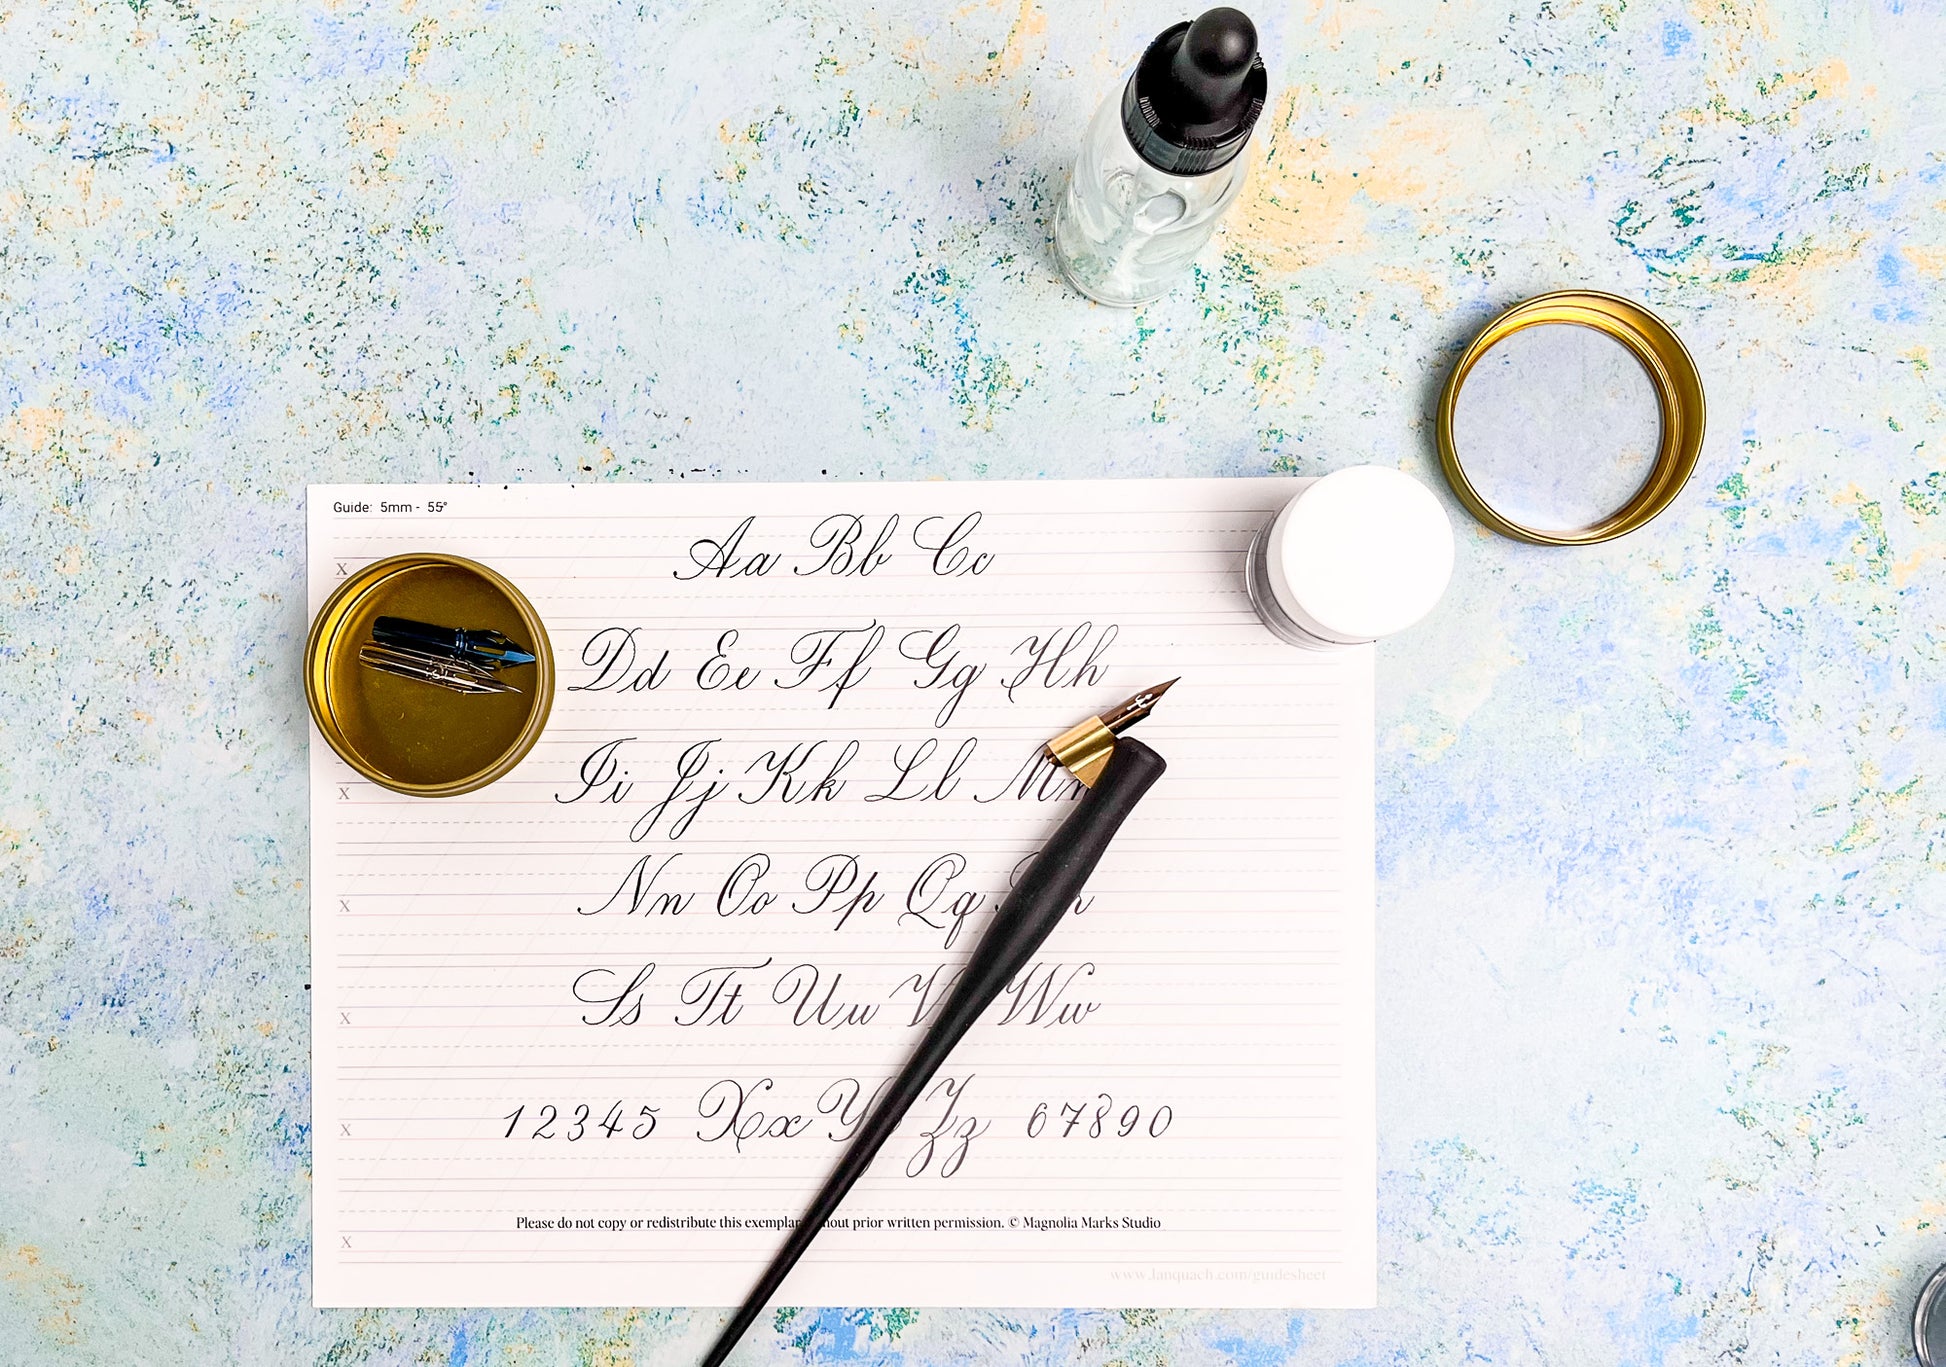 Guide: 5mm - 55°
Aa Bb Cc
x
Dd Ee Ff Gg Hh
Ii Jj Kk Ll
x
Nn Oo Pp Qq
x
Ss Tt Uu Ww
x
12345 Xx Zz 67890
x
Please do not copy or redistribute this exemplar prior written permission. © Magnolia Marks Studio
x
www.lanquach.com/guidesheet